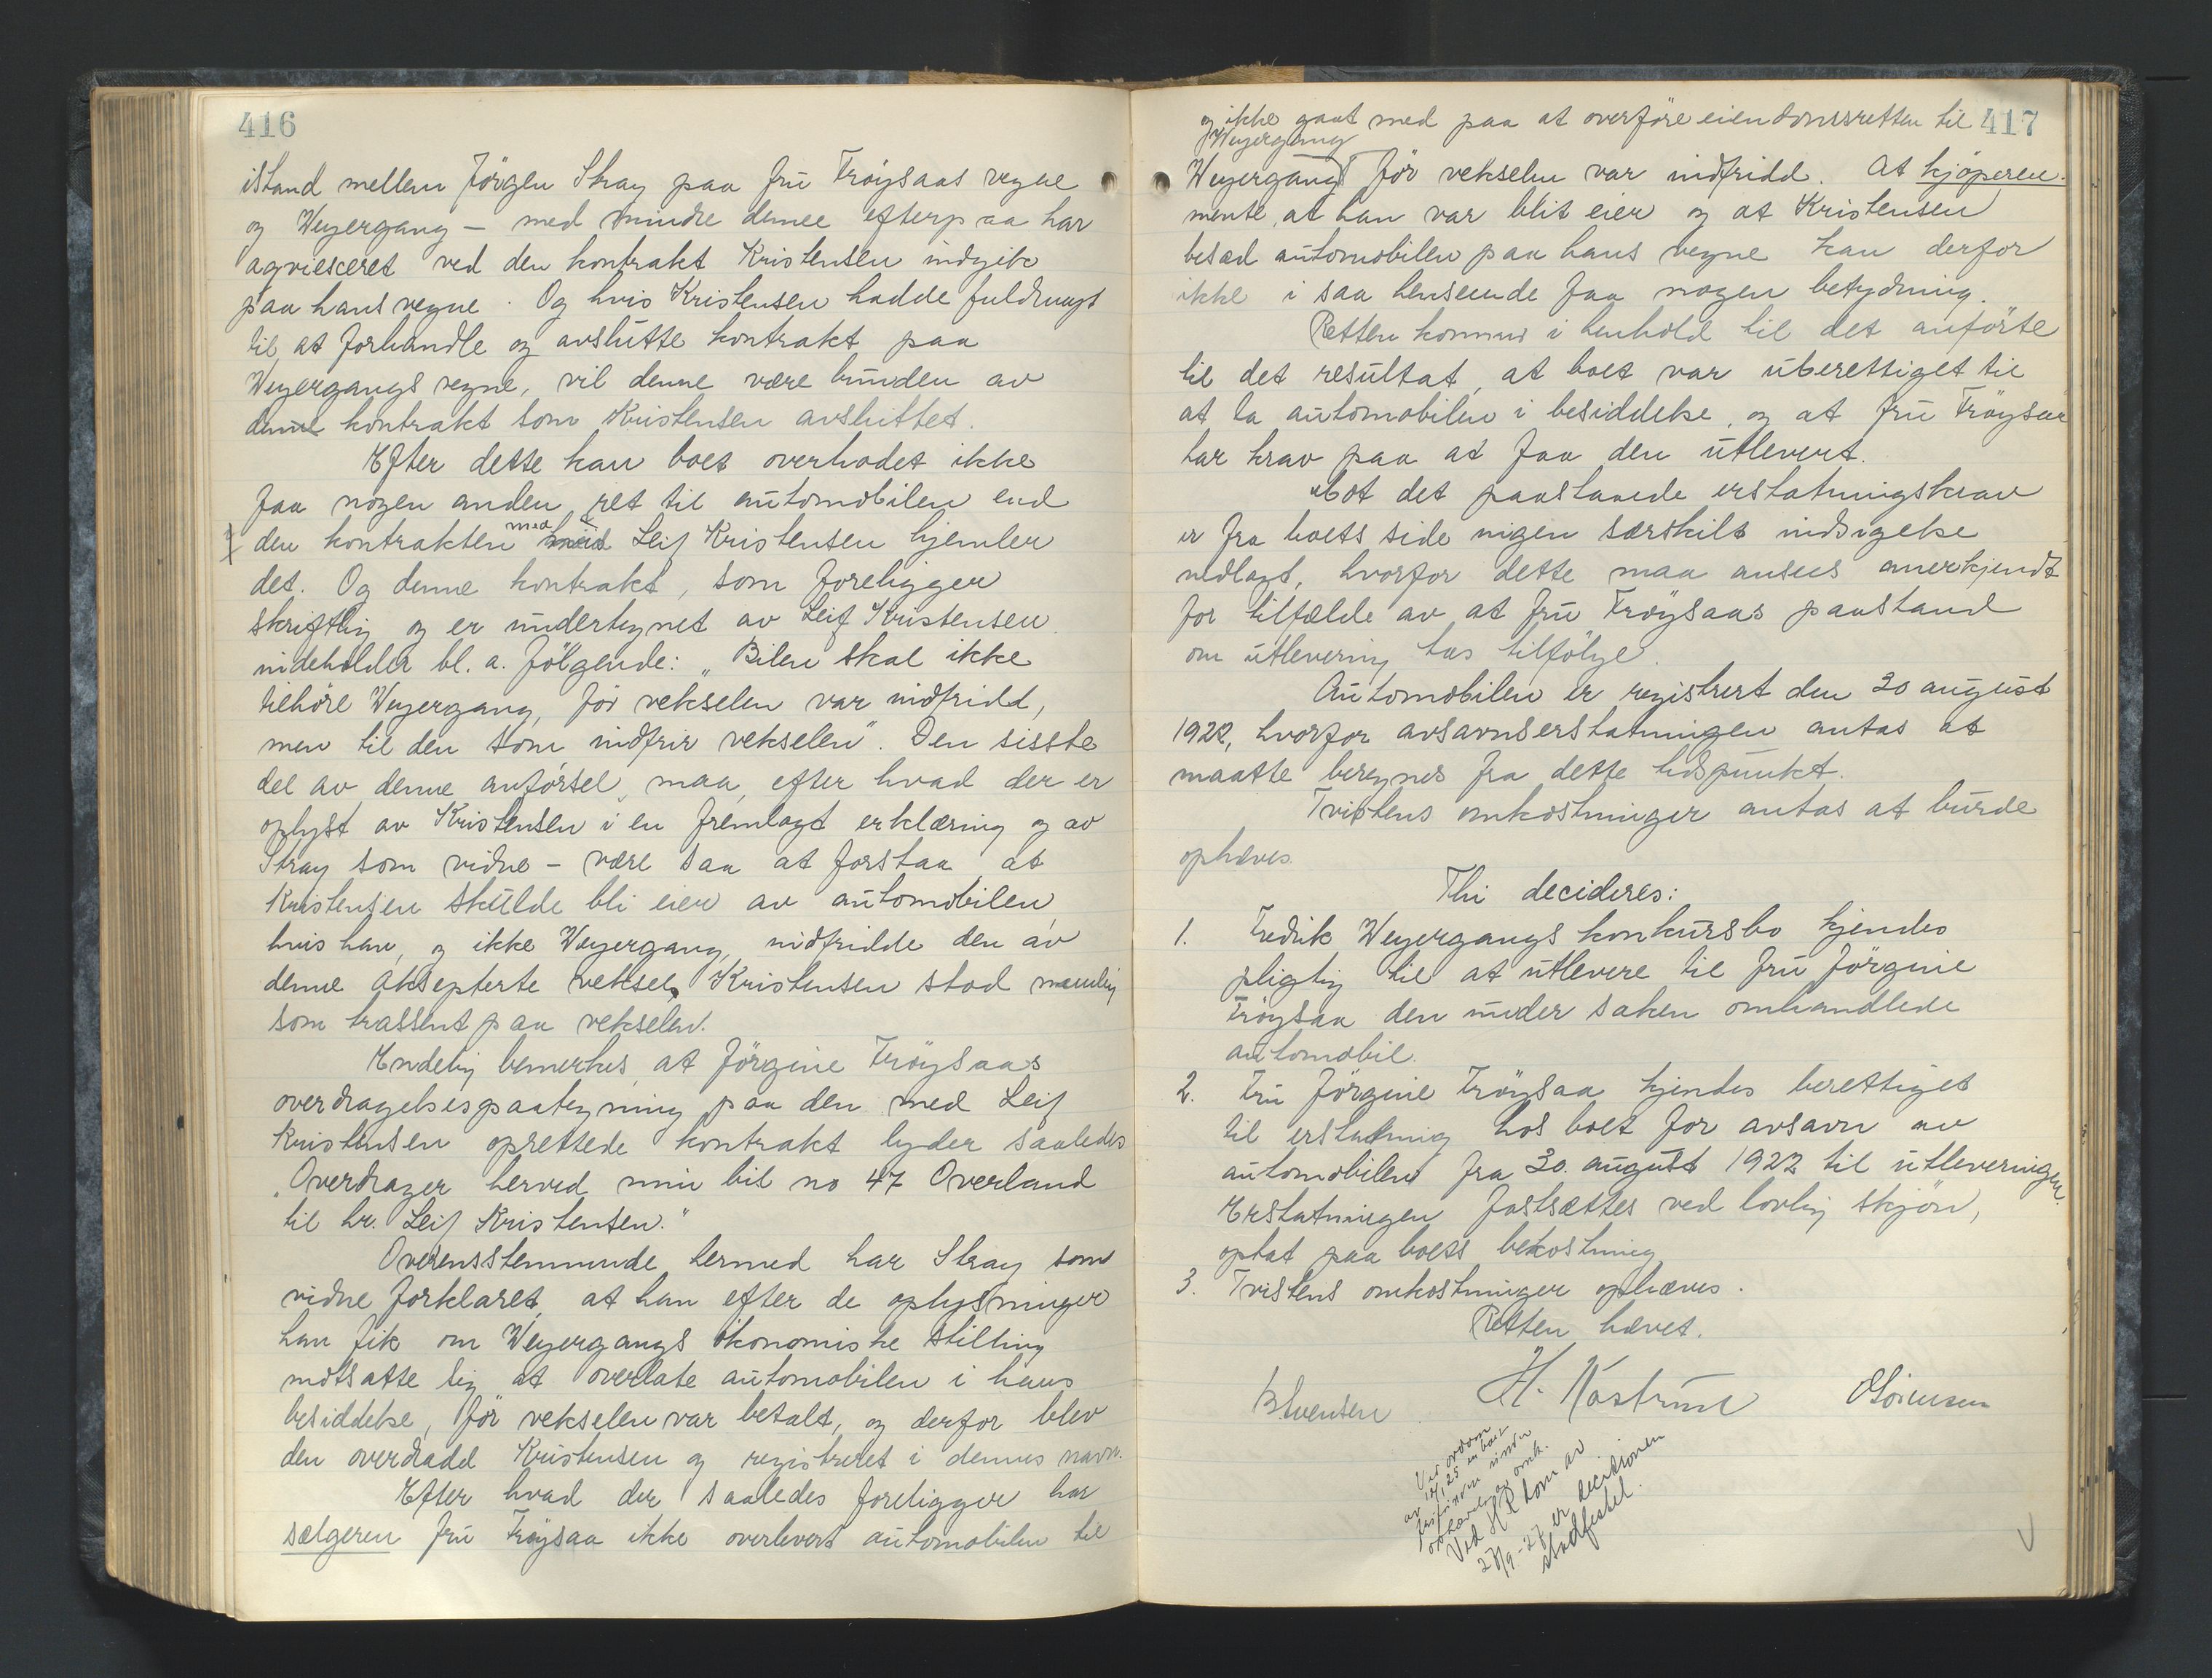 416
istand mellem Jörgen Stray paa fru Tröysaas vegne
og Weyergang – med mindre denne efterpaa har
aqviesceret ved den kontrakt Kristensen indgik
paa hans vegne. Og hvis Kristensen hadde fuldmagt
til at forhandle og avslutte kontrakt paa
Weyergangs vegne, vil denne være bunden av
denne kontrakt som Kristensen avsluttet.
Efter dette kan boet overhodet ikke
faa nogen anden ret til automobilen end
den kontrakten med Leif Kristensen hjemler
det. Og denne kontrakt, som foreligger
skriftlig og er undertegnet av Leif Kristensen
indeholder bl. a. følgende: „Bilen skal ikke
tilhöre Weyergang, för vekselen var indfridd,
men til den som indfrir vekselen". Den sisste
del av denne anförsel, maa, efter hvad der er
oplyst av Kristensen i en fremlagt erklæring og av
Stray som vidne – være saa at forstaa at
Kristensen skulde bli eier av automobilen,
hvis han, og ikke Weyergang, indfridde den av
denne aksepterte veksel, Kristensen stod nemlig
som trassent paa vekselen.
Endelig bemerkes at Jörgine Tröysaas
overdragelsespaategning paa den med Leif
Kristensen oprettede kontrakt lyder saaledes
„Overdrager herved min bil no 47 Overland
til hr. Leif Kristensen."
Overensstemmende hermed har Stray som
vidne forklaret, at han efter de oplysninger
han fik om Weyergangs ökonomiske stilling
motsatte sig at overlate automobilen i hans
besiddelse, för vekselen var betalt, og derfor blev
den overdradd Kristensen og registreret i dennes navn.
Efter hvad der saaledes foreligger har
sælgeren fru Tröysaa ikke overlevert automobilen til
417
og ikke gaat med paa at overföre eiendomsretten til
Weyergang
Weyergang för vekselen var indfridd. At kjöperen
mente, at han var blit eier og at Kristensen
besad automobilen paa hans vegne kan derfor
ikke i saa henseende faa nogen betydning.
Retten kommer i henhold til det anförte
til det resultat, at boet var uberettiget til
at ta automobilen i besiddelse, og at fru Tröysaa
har krav paa at faa den utlevert.
Mot det paastaaede erstatningskrav
er fra boets side ingen særskilt indsigelse
nedlagt, hvorfor dette maa ansees anerkjendt
for tilfælde av at fru Tröysaas paastand
om utlevering tas tilfölge.
Automobilen er registrert den 30 august
1922, hvorfor avsavnserstatningen antas at
maatte beregnes fra dette tidspunkt.
Tvistens omkostninger antas at burde
ophæves.
Thi decideres:
1. Fredrik Weyergangs konkursbo kjendes
pligtig til at utlevere til fru Jörgine
Tröysaa den under saken omhandlede
automobil.
2. Fru Jörgine Tröysaa kjendes berettiget
til erstatning hos boet for avsavn av
automobilen fra 30. august 1922 til utleveringen.
Erstatningen fastsættes ved lovlig skjön,
optat paa boets bekostning
3. Tvistens omkostninger ophæves.
Retten hævet.
H. Kastrup
O Sörensen
Ved
er boet
Ved H R dom av
27/9-27 er decisionen
stadfestet.